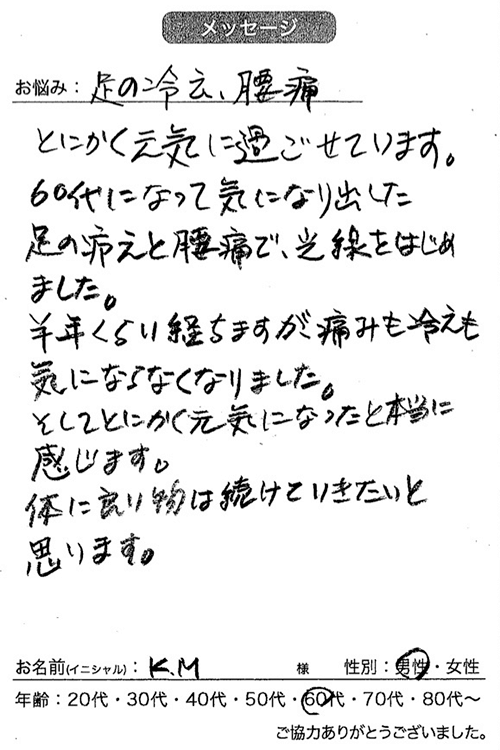 メッセージ
お悩み：足の冷え、腰痛
とにかく元気に過ごせています。
60代になって気になり出した
足の冷えと腰痛で、光線をはじめ
ました。
半年くらい経ちますが痛みも冷えも
気にならなくなりました。
そしてとにかく元気になったと本当に
感じます。
体に良い物は続けていきたいと
思います。
お名前(イニシャル)：K.M 様 性別：男性・女性
年齢：20代・30代・40代・50代・60代・70代・80代〜
ご協力ありがとうございました。